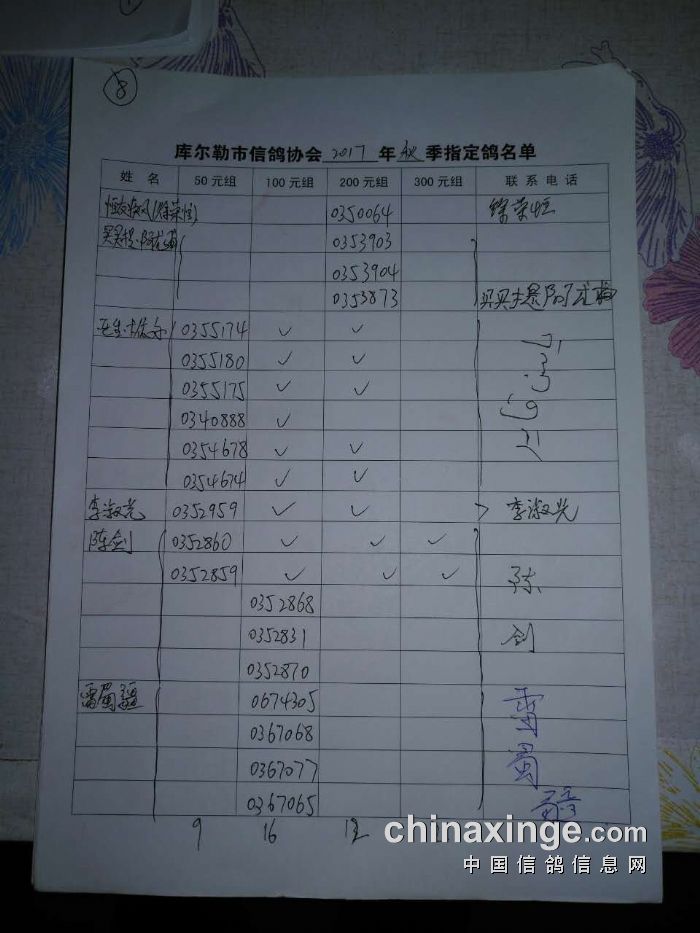 8
库尔勒市信鸽协会 2017 年 秋 季指定鸽名单
姓 名 50元组 100元组 200元组 300元组 联系电话
0350064 徐荣恒
0353903
0353904
0353873
0355174 ✓ ✓
0355180 ✓ ✓
0355175 ✓ ✓
0340888 ✓
0354678 ✓ ✓
0354674 ✓ ✓
李淑光 0352959 ✓ ✓ 李淑光
陈剑 0352860 ✓ ✓ ✓
0352859 ✓ ✓ ✓ 陈
0352868
0352831 剑
0352870
雷蜀疆 0674305 雷
0367068
0367077 蜀
0367065 疆
9 16 12
chinaxinge.com
中国信鸽信息网